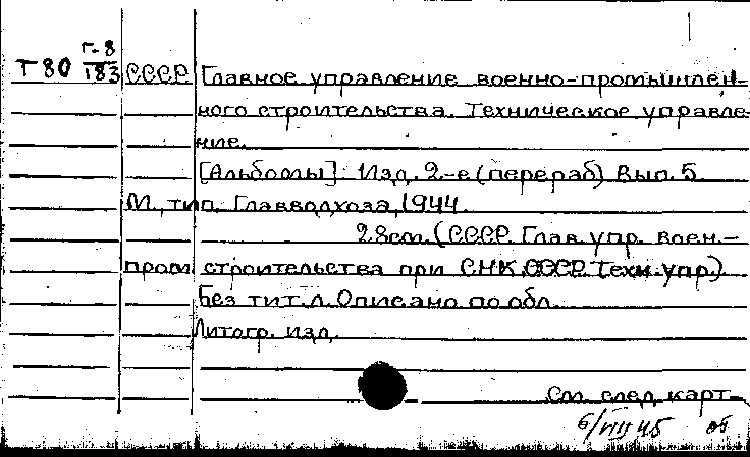 Г-8
Т80 183 СССР. Главное управление военно-промышлен-
ного строительства. Техническое управле-
ние.
[Альбомы]. Изд. 2-е (перераб) Вып. 5.
М., тип. Главводхоза, 1944.
28см. (СССР. Глав. упр. воен.-
пром строительства при СНК СССР. Техн. упр.)
Без тит. л. Описано по обл.
Литогр. изд.
См. след. карт.
6/VIII 45